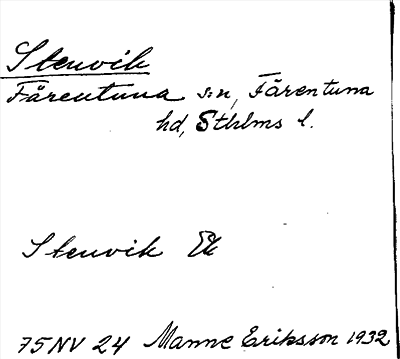 Stenvik
Färentuna s:n, Färentuna
hd, Sthlms l.
Stenvik Ek
75NV 24 Manne Eriksson 1932